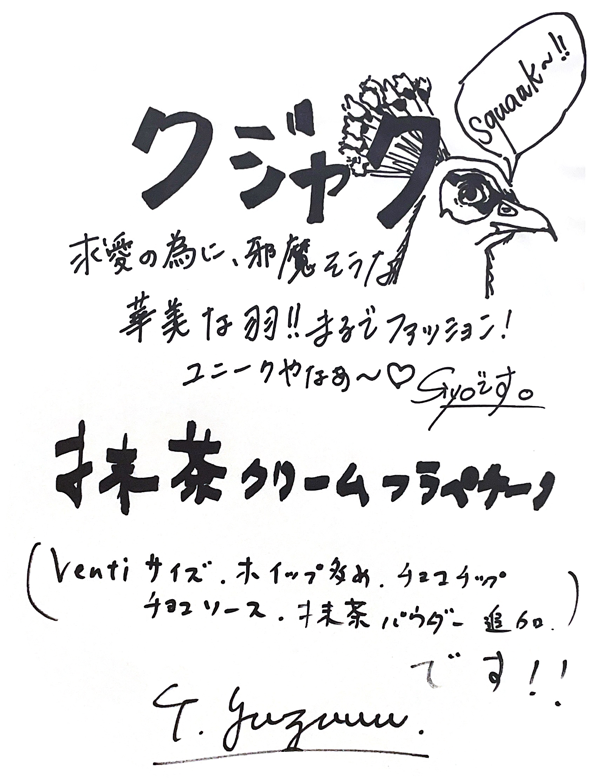 Squaak〜!!
クジャク
求愛の為に、邪魔そうな
華美な羽!!まるでファッション!
ユニークやなぁ〜♡
Gyoです。
抹茶クリームフラペチーノ
(Ventiサイズ.ホイップ多め.チョコチップ
チョコソース.抹茶パウダー追加.)
です!!